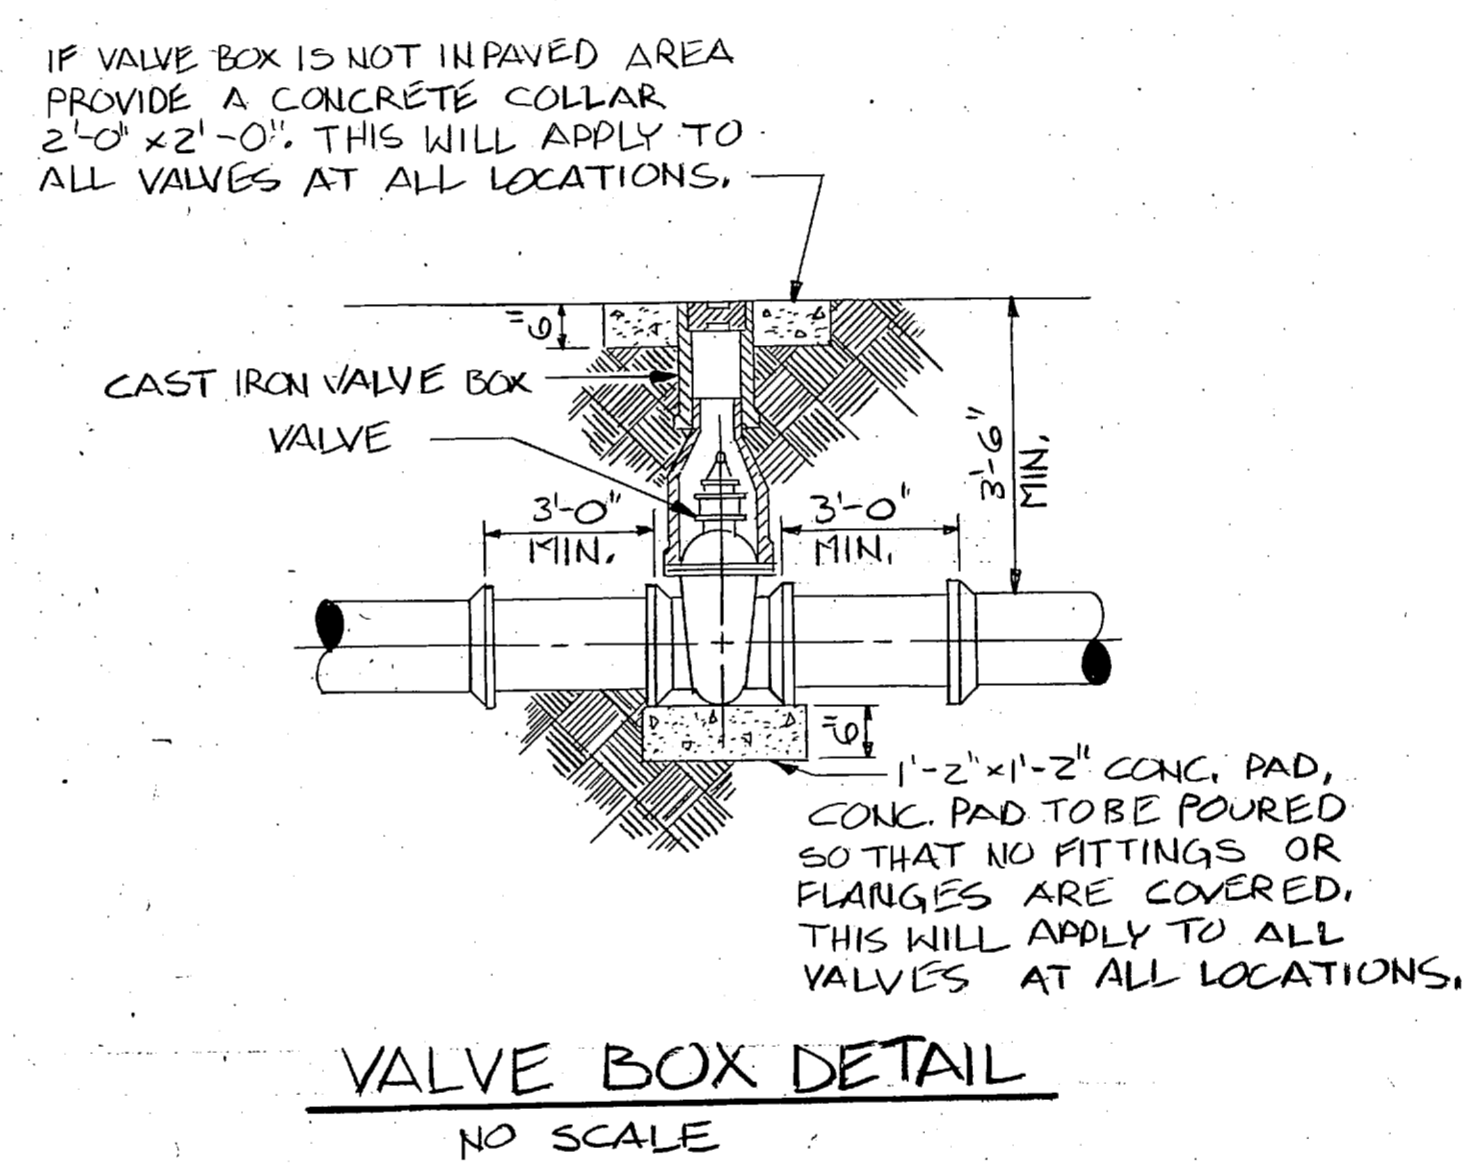 IF VALVE BOX IS NOT IN PAVED AREA
PROVIDE A CONCRETE COLLAR
2'-0" x 2'-0". THIS WILL APPLY TO
ALL VALVES AT ALL LOCATIONS.
6"
CAST IRON VALVE BOX
VALVE
3'-6"
MIN.
3'-0"
MIN.
3'-0"
MIN.
6"
1'-2" x 1'-2" CONC. PAD,
CONC. PAD TO BE POURED
SO THAT NO FITTINGS OR
FLANGES ARE COVERED.
THIS WILL APPLY TO ALL
VALVES AT ALL LOCATIONS.
VALVE BOX DETAIL
NO SCALE